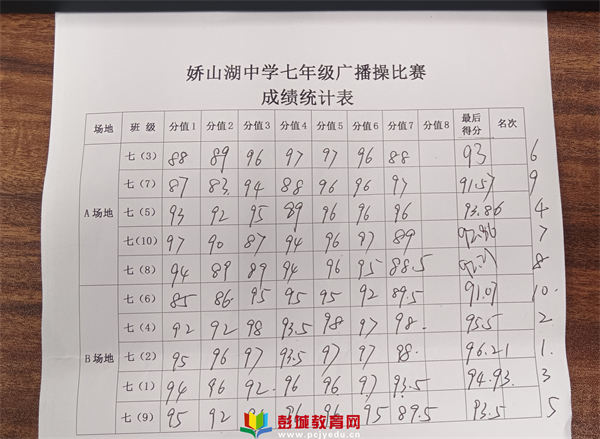 娇山湖中学七年级广播操比赛
成绩统计表
场地 班级 分值1 分值2 分值3 分值4 分值5 分值6 分值7 分值8 最后得分 名次
A场地
七（3） 88 89 96 97 97 96 88 93 6
七（7） 87 83 94 88 96 96 97 91.57 9
七（5） 93 92 95 89 96 96 96 93.86 4
七（10） 97 90 87 94 96 97 89 92.86 7
七（8） 94 89 89 94 96 95 88.5 92.21 8
B场地
七（6） 85 86 95 95 95 92 89.5 91.07 10.
七（4） 92 92 98 93.5 98 97 98. 95.5 2
七（2） 95 96 97 93.5 97 97 98. 96.21 1.
七（1） 94 96 92. 96 96 97 93.5 94.93. 3
七（9） 95 92 96 95 89.5 93.5 5
彭城教育网
www.pcjyedu.cn